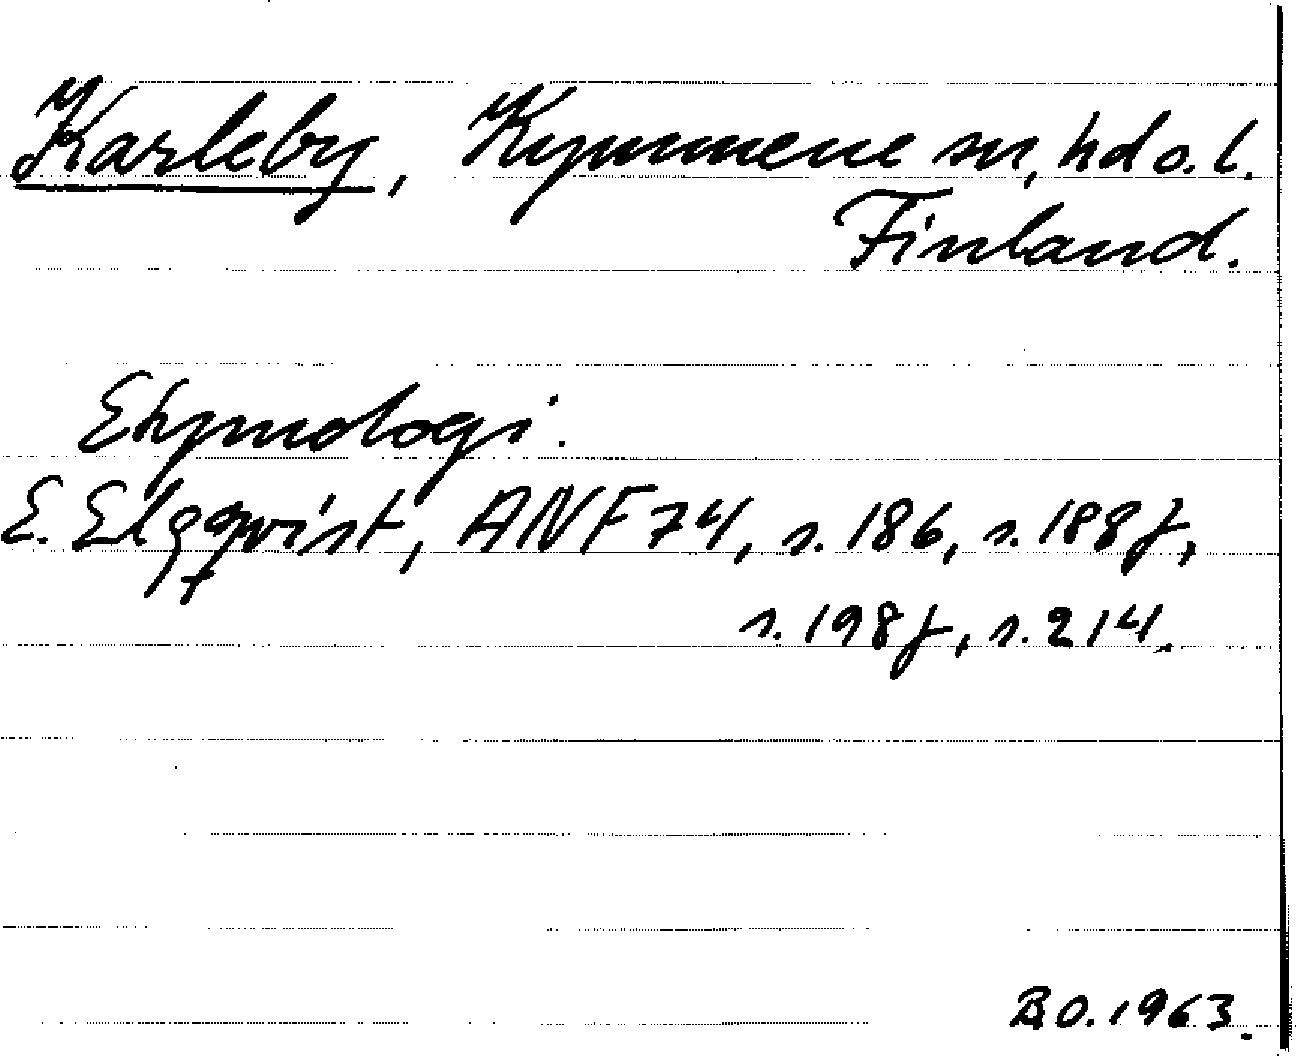 Karleby, Kymmene sn, hd o. l.
Finland.
Etymologi.
E. Elgqvist, ANF 74, s. 186, s. 188 f,
s. 198 f, s. 214.
B O. 1963.